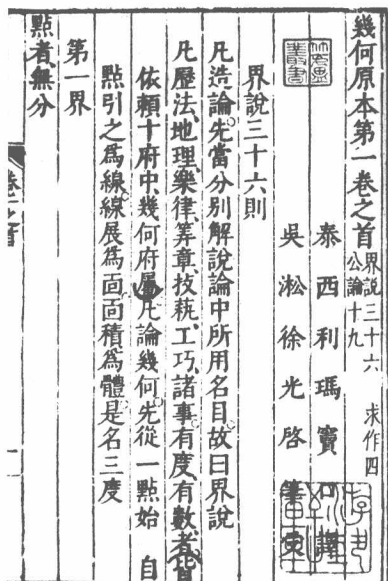 幾何原本第一卷之首界說三十六 求作四
公論十九
泰西利瑪竇口譯
吳淞徐光啓筆受
界說三十六則
凡造論。先當分別解說論中所用名目。故曰界說
凡歷法、地理、樂律、筭章、技藝、工巧、諸事。有度、有數者。皆
依賴十府中、幾何府屬。凡論幾何。先從一點始 自
點引之爲線。線展爲面。面積爲體。是名三度
第一界
點者、無分